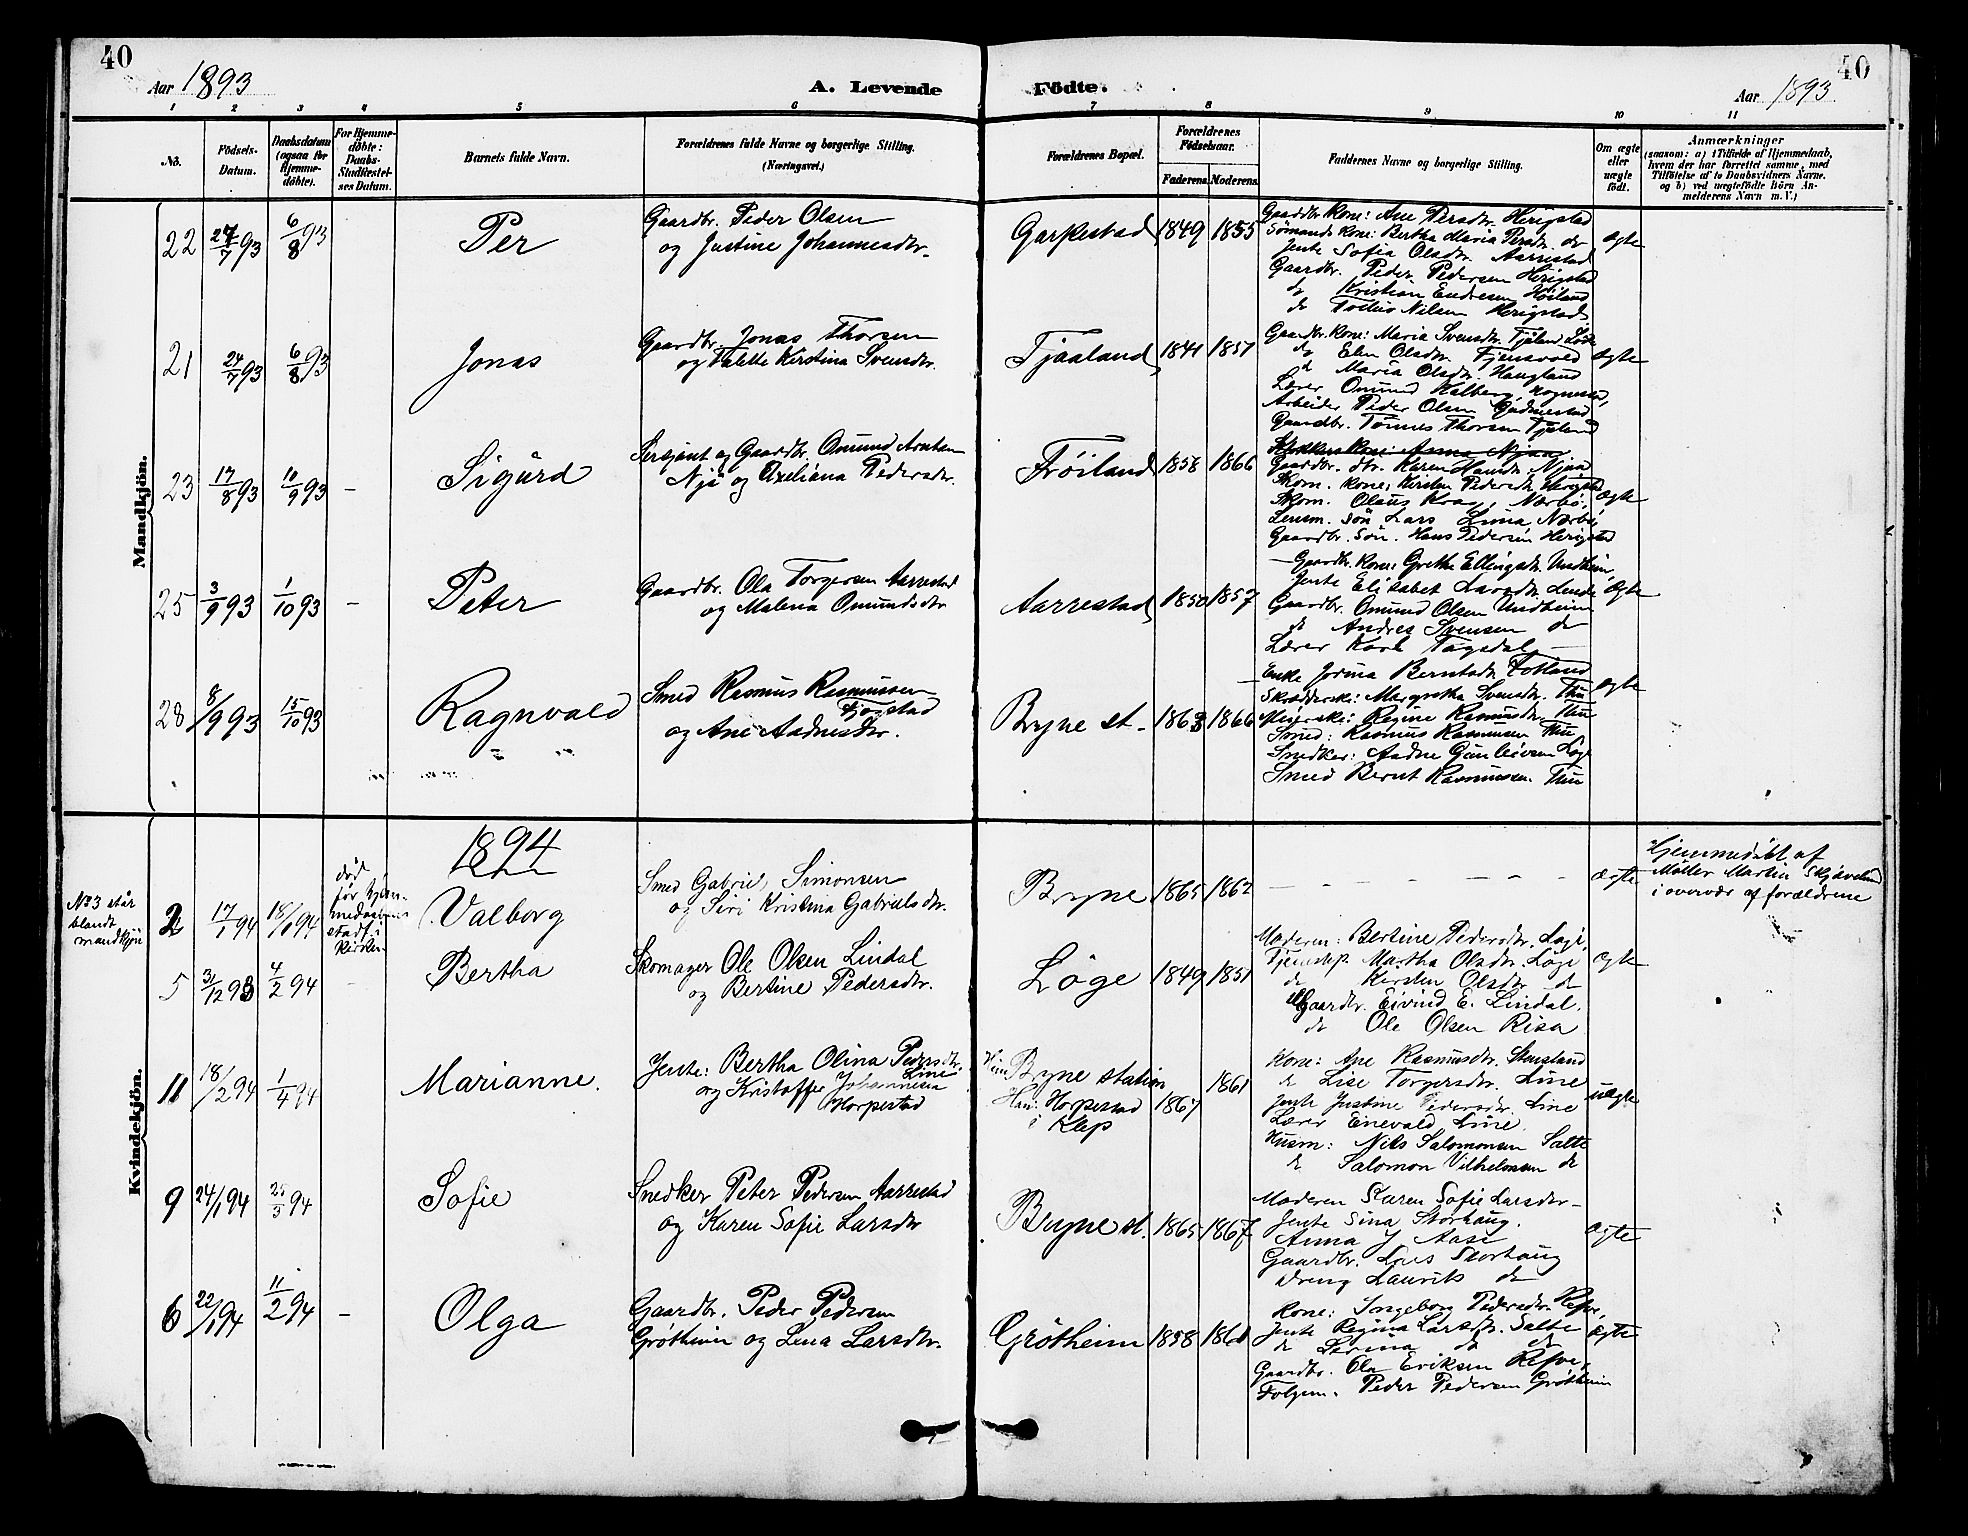 40
Aar 1893
A. Levende
Födte.
Aar 1893.
40
1 2 3 4 5 6 7 8 9 10 11
No.
Födsels-Datum.
Daabsdatum (ogsaa for Hjemme-döbte).
For Hjemme-döbte: Daabs-Stadfæstel-ses Datum.
Barnets fulde Navn.
Forældrenes fulde Navne og borgerlige Stilling. (Næringsvei.)
Forældrenes Bopæl.
Forældrenes Födselsaar.
Faderens. Moderens.
Faddernes Navne og borgerlige Stilling.
Om ægte eller uægte födt.
Anmærkninger
(saasom: a) i Tilfælde af Hjemmedaab, hvem der har forrettet samme, med Tilföielse af to Daabsvidners Navne, og b) ved uægtefödte Börn Anmelderens Navn m. V.)
Mandkjön.
22 27/7 93 6/8 93 Per
Gaardbr. Peder Olsen
og Justine Johannesdtr.
Garpestad 1849 1855
Gaardbr. kone: Ane Persdtr. Herigstad
Sømands kone: Bertha Maria Persdtr. do
Jente Sofia Olsdtr. Aarrestad
Gaardbr. Peder Pedersen Herigstad
do Kristian Endresen Høiland
do Nilsen Herigstad
ægte
21 24/7 93 6/8 93 Jonas
Gaardbr. Jonas Thorsen
og Kirstina Svensdtr.
Tjaaland 1841 1857
Gaardbr. kone: Maria Svensdtr. Tjåland
do Elen Olsdtr.
do Maria Olsdtr. Haugland
Lærer Omund Kalberg,
Arbeider Peder Olsen
Gaardbr. Tønnes Thorsen Tjåland
ægte
23 17/8 93 10/9 93 – Sigurd
Sersjant og Gaardbr. Omund
Njå og Axeliana Pedersdtr.
Frøiland 1858 1866
kone: Anna Njaa
Gaardbr. dtr. Karen Hansdtr. Njaa
Skom. kone, Kirsten Pedersdtr. Herigstad
Skom. Olaus Nærbø,
Lensm. søn Lars Lima Nærbø
Gaardbr. Søn. Hans Pedersen Herigstad
ægte
25 3/9 93 1/10 93 – Peter
Gaardbr. Ola Torgersen Aarrestad
og Malena Omundsdtr
Aarrestad 1850 1857
– Gaardbr. kone: Grethe Ellingsdtr. Undheim
Jente Elisabet Larsdtr. Lende
Gaardbr. Omund Olsen Undheim
do Andres Svensen do
Lærer Karl
ægte
28 8/9 93 15/10 93 Ragnvald
Smed Rasmus Rasmussen
og Ane Aadnesdtr.
Bryne st. 1863 1866
Enke Jorina Berntsdtr. Fotland
Skrædderske: Margretha Svensdtr. Thu
Meierske: Regine Rasmusdtr. Thu
Smed: Rasmus Rasmussen Thu
Snedker: Aadne Gunleivsen Løge
Smed Bernt Rasmussen Thu
ægte
Kvindekjön.
1894
No 3 står
blandt
mandkjøn
2 17/1 94 18/1 94
død
før Hjem-
medaabens
stadf. i
kirken
Valborg
Smed Gabriel Simonsen
og Siri Kristina Gabrielsdtr.
Bryne 1865 1862
– – – – – –
ægte
Hjemmedøbt af
Møller Martin
i overvær af forældrene
5 3/12 93 4/2 94 – Bertha
Skomager Ole Olsen Lindal
og Bertine Pedersdtr.
Løge 1849 1851
Moderen: Bertine Pedersdtr. Løge.
Tjenstep. Martha Olsdtr. Løge
do Kirsten Olsdtr do
Gaardbr. Eivind E. Lindal.
do Ole Olsen Risa
ægte
11 18/2 94 1/4 94 Marianne.
Jente: Bertha Olina Pedersdtr. Line
og Kristoffer Johannesen
Horpestad
Hun Bryne station 1861
Han: Horpestad 1867
i Klep
Kone: Ane Rasmusdtr.
do Lise Torgersdtr. Line
Jente Justine Pedersdtr. Line
Lærer Enevald Line.
Husm: Nils Salomonsen Salte
do Salomon Vilhelmsen do
uægte
9 24/1 94 25/3 94 Sofie
Snedker Peter Pedersen Aarrestad
og Karen Sofie Larsdtr
Bryne st. 1865 1867
Moderen Karen Sofie Larsdtr –
Jente Sina Storhaug.
Anna J Aase
Gaardbr. Lars Storhaug
Dreng Laurits do
ægte
6 22/1 94 11/2 94 – Olga
Gaardbr. Peder Pedersen
Grøtheim og Lena Larsdtr.
Grøtheim 1858 1861
Kone: Ingeborg Pedersdtr. Refve,
Jente Regina Larsdtr. Salte
do Serina do do
Gaardbr. Ola Eriksen Refve,
Folgem. Peder Pedersen Grøtheim
ægte